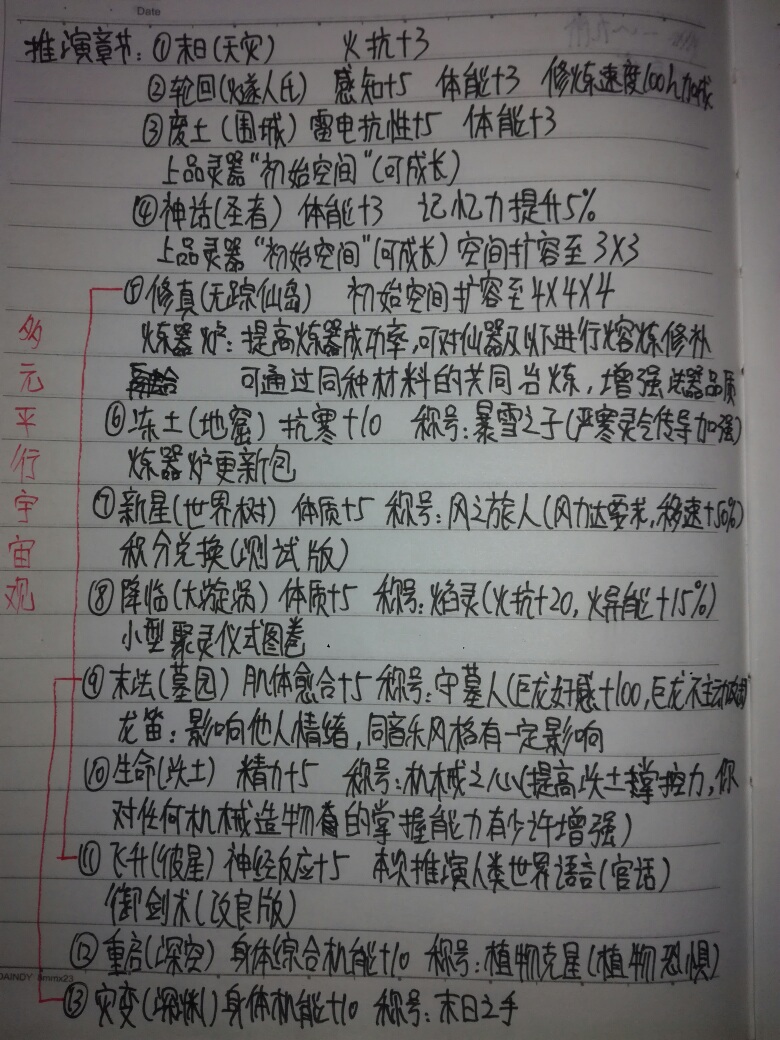 Date
推演章节：①末日(天灾) 火抗+3
②轮回(燧人氏) 感知+5 体能+3 修炼速度100%加成
③废土(围城) 雷电抗性+5 体能+3
上品灵器"初始空间"(可成长)
④神话(圣者) 体能+3 记忆力提升5%
上品灵器"初始空间"(可成长)空间扩容至3X3
⑤修真(无踪仙岛) 初始空间扩容至4X4X4
炼器炉：提高炼器成功率,可对仙器及以下进行熔炼修补
可通过同种材料的共同岩炼，增强法器品质
⑥冻土(地窟) 抗寒+10 称号：暴雪之子(严寒灵气传导加强)
炼器炉更新包
⑦新星(世界树) 体质+5 称号：风之旅人(风力达要求,移速+50%)
积分兑换(测试版)
⑧降临(大漩涡) 体质+5 称号：焰灵(火抗+20,火异能+15%)
小型聚灵仪式图卷
⑨末法(墓园) 肌体愈合+5 称号：守墓人(巨龙好感+100,巨龙不主动
龙笛：影响他人情绪，同音乐风格有一定影响
⑩生命(跌土) 精力+5 称号：机械之心(提高跌土掌控力，你
对任何机械造物的掌握能力有少许增强)
⑪飞升(彼星) 神经反应+5 本次推演人类世界语言(官话)
御剑术(改良版)
⑫重启(深空) 身体综合机能+10 称号：植物克星(植物恐惧)
⑬灾变(深渊) 身体机能+10 称号：末日之手
多元平行宇宙观
DAINOY 8mmx23